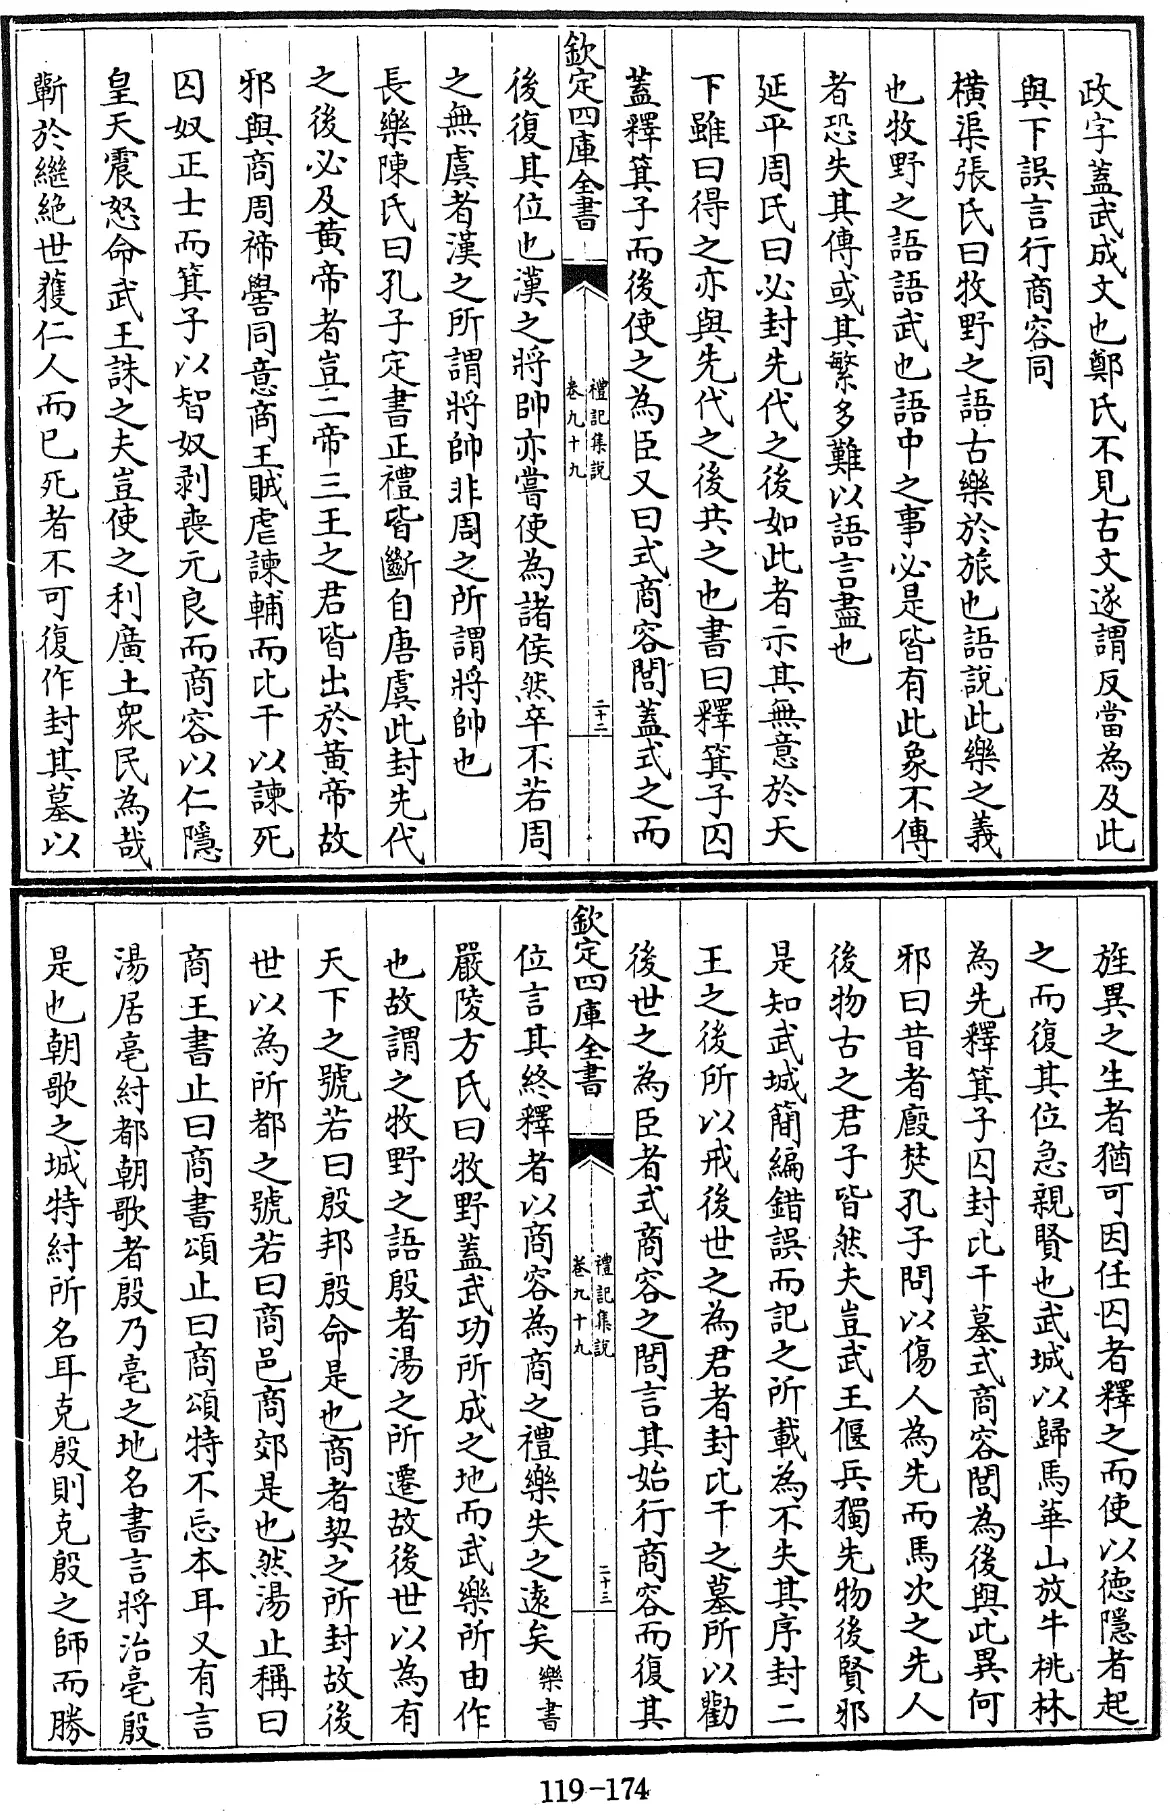 政字蓋武成文也鄭氏不見古文遂謂反當為及此
與下誤言行商容同
橫渠張氏曰牧野之語古樂於旅也語說此樂之義
也牧野之語語武也語中之事必是皆有此象不傳
者恐失其傳或其繁多難以語言盡也
延平周氏曰必封先代之後如此者示其無意於天
下雖曰得之亦與先代之後共之也書曰釋箕子囚
蓋釋箕子而後使之為臣又曰式商容閭蓋式之而
欽定四庫全書
禮記集說
卷九十九
二十二
後復其位也漢之將帥亦嘗使為諸侯然卒不若周
之無虞者漢之所謂將帥非周之所謂將帥也
長樂陳氏曰孔子定書正禮皆斷自唐虞此封先代
之後必及黃帝者豈二帝三王之君皆出於黃帝故
邪與商周禘嚳同意商王賊虐諫輔而比干以諫死
囚奴正士而箕子以智奴剥喪元良而商容以仁隱
皇天震怒命武王誅之夫豈使之利廣土衆民為哉
蘄於繼絶世獲仁人而已死者不可復作封其墓以
旌異之生者猶可因任囚者釋之而使以德隱者起
之而復其位急親賢也武城以歸馬華山放牛桃林
為先釋箕子囚封比干墓式商容閭為後與此異何
邪曰昔者廏焚孔子問以傷人為先而馬次之先人
後物古之君子皆然夫豈武王偃兵獨先物後賢邪
是知武城簡編錯誤而記之所載為不失其序封二
王之後所以戒後世之為君者封比干之墓所以勸
後世之為臣者式商容之閭言其始行商容而復其
欽定四庫全書
禮記集說
卷九十九
二十三
位言其終釋者以商容為商之禮樂失之遠矣樂書
嚴陵方氏曰牧野蓋武功所成之地而武樂所由作
也故謂之牧野之語殷者湯之所遷故後世以為有
天下之號若曰殷邦殷命是也商者契之所封故後
世以為所都之號若曰商邑商郊是也然湯止稱曰
商王書止曰商書頌止曰商頌特不忘本耳又有言
湯居亳紂都朝歌者殷乃亳之地名書言將治亳殷
是也朝歌之城特紂所名耳克殷則克殷之師而勝
119-174